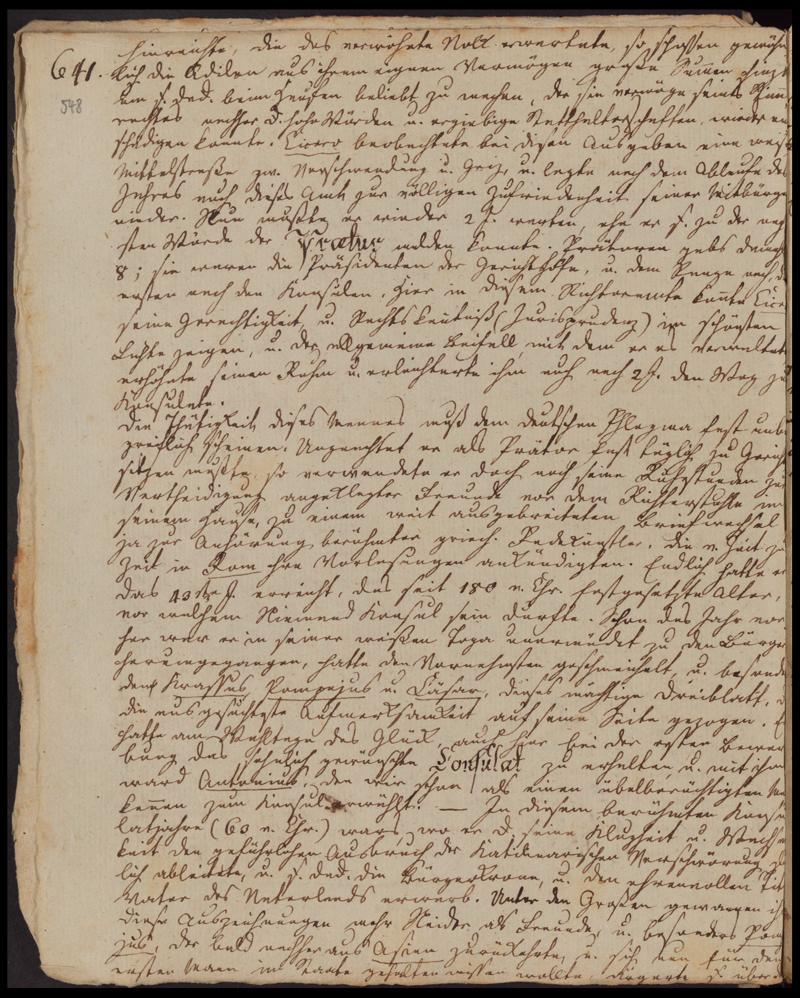 hinreichte, die das verwöhnte Volk erwartete, so schossen gewöhn
641. lich die Ädilen aus ihrem eignen Vermögen große Summen hinzu
548 um s. dad. beim Haufen beliebt zu machen, der sie vermöge seines Stimm
rechtes nachher d. hohe Würden u. ergiebige Statthalterschaften, wieder ent
schädigen konnte. Cicero beobachtete bei diesen Ausgaben eine weise
Mittelstraße zw. Verschwendung u. Geiz, u. legte nach dem Ablaufe des
Jahres auch dieses Amt zur völligen Zufriedenheit seiner Mitbürger
nieder. Nun mußte er wieder 2 J. warten, ehe er s. zu der näch
sten Würde der Prätur melden konnte. Prätoren gabs damals
8; sie waren die Präsidenten der Gerichtshöfe, u. dem Range nach d.
ersten nach den Konsulen. Hier in diesem Richteramte konnte Cicero
seine Gerechtigkeit u. Rechtskentniß (Jurisprudenz) im schönsten
Lichte zeigen, u. der allgemeine Beifall, mit dem er es verwaltete
erhöhte seinen Ruhm u. erleichterte ihm auch nach 2 J. den Weg zum
Konsulate.
Die Thätigkeit dieses Mannes muß dem deutschen Phlegma fast unbe
greiflich scheinen. Ungeachtet er als Prätor fast täglich zu Gericht
sitzen mußte, so verwendete er doch noch seine Ruhestunden zur
Vertheidigung angeklagter Freunde vor dem Richterstuhle in
seinem Hause, zu einem weit ausgebreiteten Briefwechsel
ja zur Anhörung berühmter griech. Redekünstler, die v. Zeit zu
Zeit in Rom ihre Vorlesungen ankündigten. Endlich hatte er
das 43ste J. erreicht, das seit 180 v. Chr. festgesetzte Alter,
vor welchem Niemand Konsul sein durfte. Schon das Jahr vor
her war er in seiner weißen Toga unermüdet zu den Bürgern
herumgegangen, hatte den Vornehmsten geschmeichelt, u. besonders
dem Krassus, Pompejus u. Cäsar, dieses mächtige Dreiblatt, d.
die ausgesuchteste Aufmerksamkeit auf seine Seite gezogen. Er
hatte am Wahltage das Glück, auch hier bei der ersten Bewer
bung das sehnlich gewünschte Consulat zu erhalten, u. mit ihm
ward Antonius, den wir schon als einen übelberüchtigten
kennen zum Konsul erwählt. — In diesem berühmten Konsu
latjahre (60 v. Chr.) wars, wo er d. seine Klugheit u. Wachsam
keit den gefährlichen Ausbruch der Katilinarischen Verschwörung
lich ableitete, u. s. dad. die Bürgerkrone, u. den ehrenvollen Titel
Vater des Vaterlands erwarb. Unter den Großen gewannen ihm
diese Auszeichnungen mehr Neider als Freunde, u. besonders Pom
pejus, der bald nachher aus Asien zurückkehrte, u. sich nun für den
ersten Mann im Staate gehalten wissen wollte, ärgerte s. über